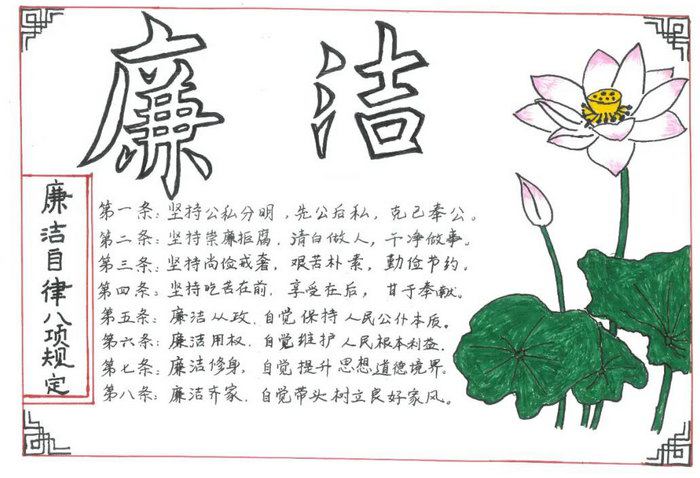 廉洁
廉洁自律八项规定
第一条：坚持公私分明，先公后私，克己奉公。
第二条：坚持崇廉拒腐，清白做人，干净做事。
第三条：坚持尚俭戒奢，艰苦朴素，勤俭节约。
第四条：坚持吃苦在前，享受在后，甘于奉献。
第五条：廉洁从政，自觉保持人民公仆本质。
第六条：廉洁用权，自觉维护人民根本利益。
第七条：廉洁修身，自觉提升思想道德境界。
第八条：廉洁齐家，自觉带头树立良好家风。